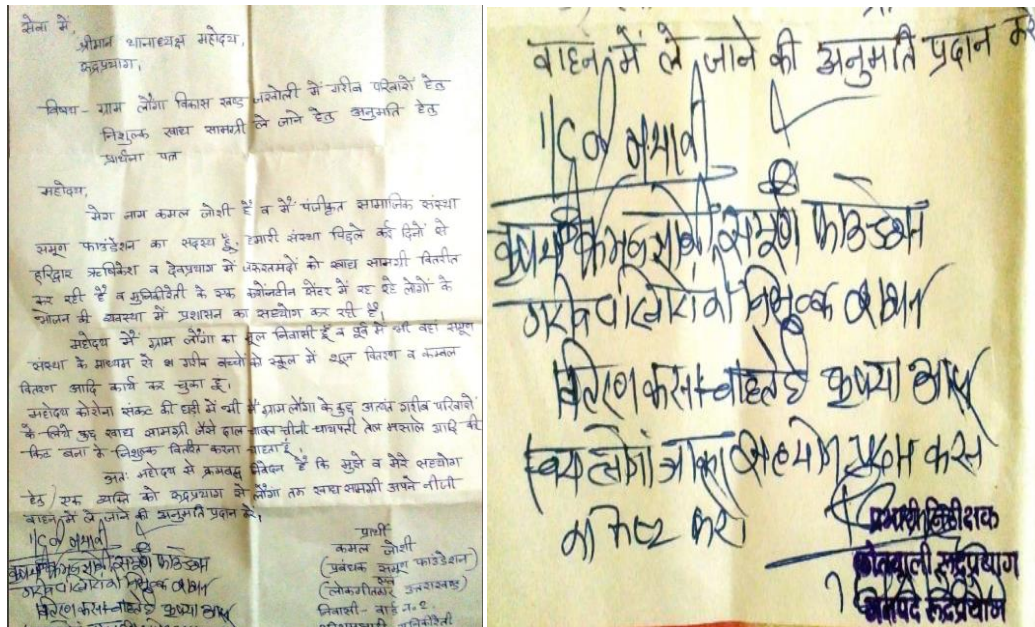 सेवा में,
श्रीमान थानाध्यक्ष महोदय,
रुद्रप्रयाग,
विषय - ग्राम लौंगा विकास खण्ड जखोली में गरीब परिवारों हेतु
निशुल्क खाद्य सामग्री ले जाने हेतु अनुमति हेतु
प्रार्थना पत्र
महोदय,
मेरा नाम कमल जोशी है व मैं पंजीकृत सामाजिक संस्था
समूण फाउंडेशन का सदस्य हूँ, हमारी संस्था पिछले कई दिनों से
हरिद्वार ऋषिकेश व देवप्रयाग में जरूरतमदों को खाद्य सामग्री वितरीत
कर रही है व मुनिकीरेती के एक क्वॉरनटीन सेंटर में रह रहे लोगों के
भोजन की व्यवस्था में प्रशासन का सहयोग कर रही है।
महोदय मैं ग्राम लौंगा का मूल निवासी हूँ व पूर्व में भी वहां समूण
संस्था के माध्यम से गरीब बच्चों को स्कूल में शूज वितरण व कम्बल
वितरण आदि कार्य कर चुका हूँ,
महोदय कोरोना संकट की घड़ी में भी मैं ग्राम लौंगा के कुछ अत्यंत गरीब परिवारों
के लिये कुछ खाद्य सामग्री जैसे दाल चावल चीनी चायपत्ती तेल मसाले आदि की
किट बना के निशुल्क वितरीत करना चाहता हूँ
अतः महोदय से निवेदन है कि मुझे व मेरे सहयोग
हेतु एक व्यक्ति को रुद्रप्रयाग से लौंगा तक खाद्य सामग्री अपने नीजी
वाहन में ले जाने की अनुमति प्रदान करें,
प्रार्थी
कमल जोशी
(प्रबंधक समूण फाउंडेशन)
एवं
(लोकगीतगार उत्तराखण्ड)
निवासी - वार्ड न. 2,
मुनिकीरेती
वाहन में ले जाने की अनुमति प्रदान करें
समूण फाउंडेशन
गरीब परिवारों को निशुल्क राशन
वितरण करना चाहते है कृपया आप
सहयोग प्रदान करने
का कष्ट करें
प्रभारी निरीक्षक
कोतवाली रुद्रप्रयाग
जनपद रुद्रप्रयाग